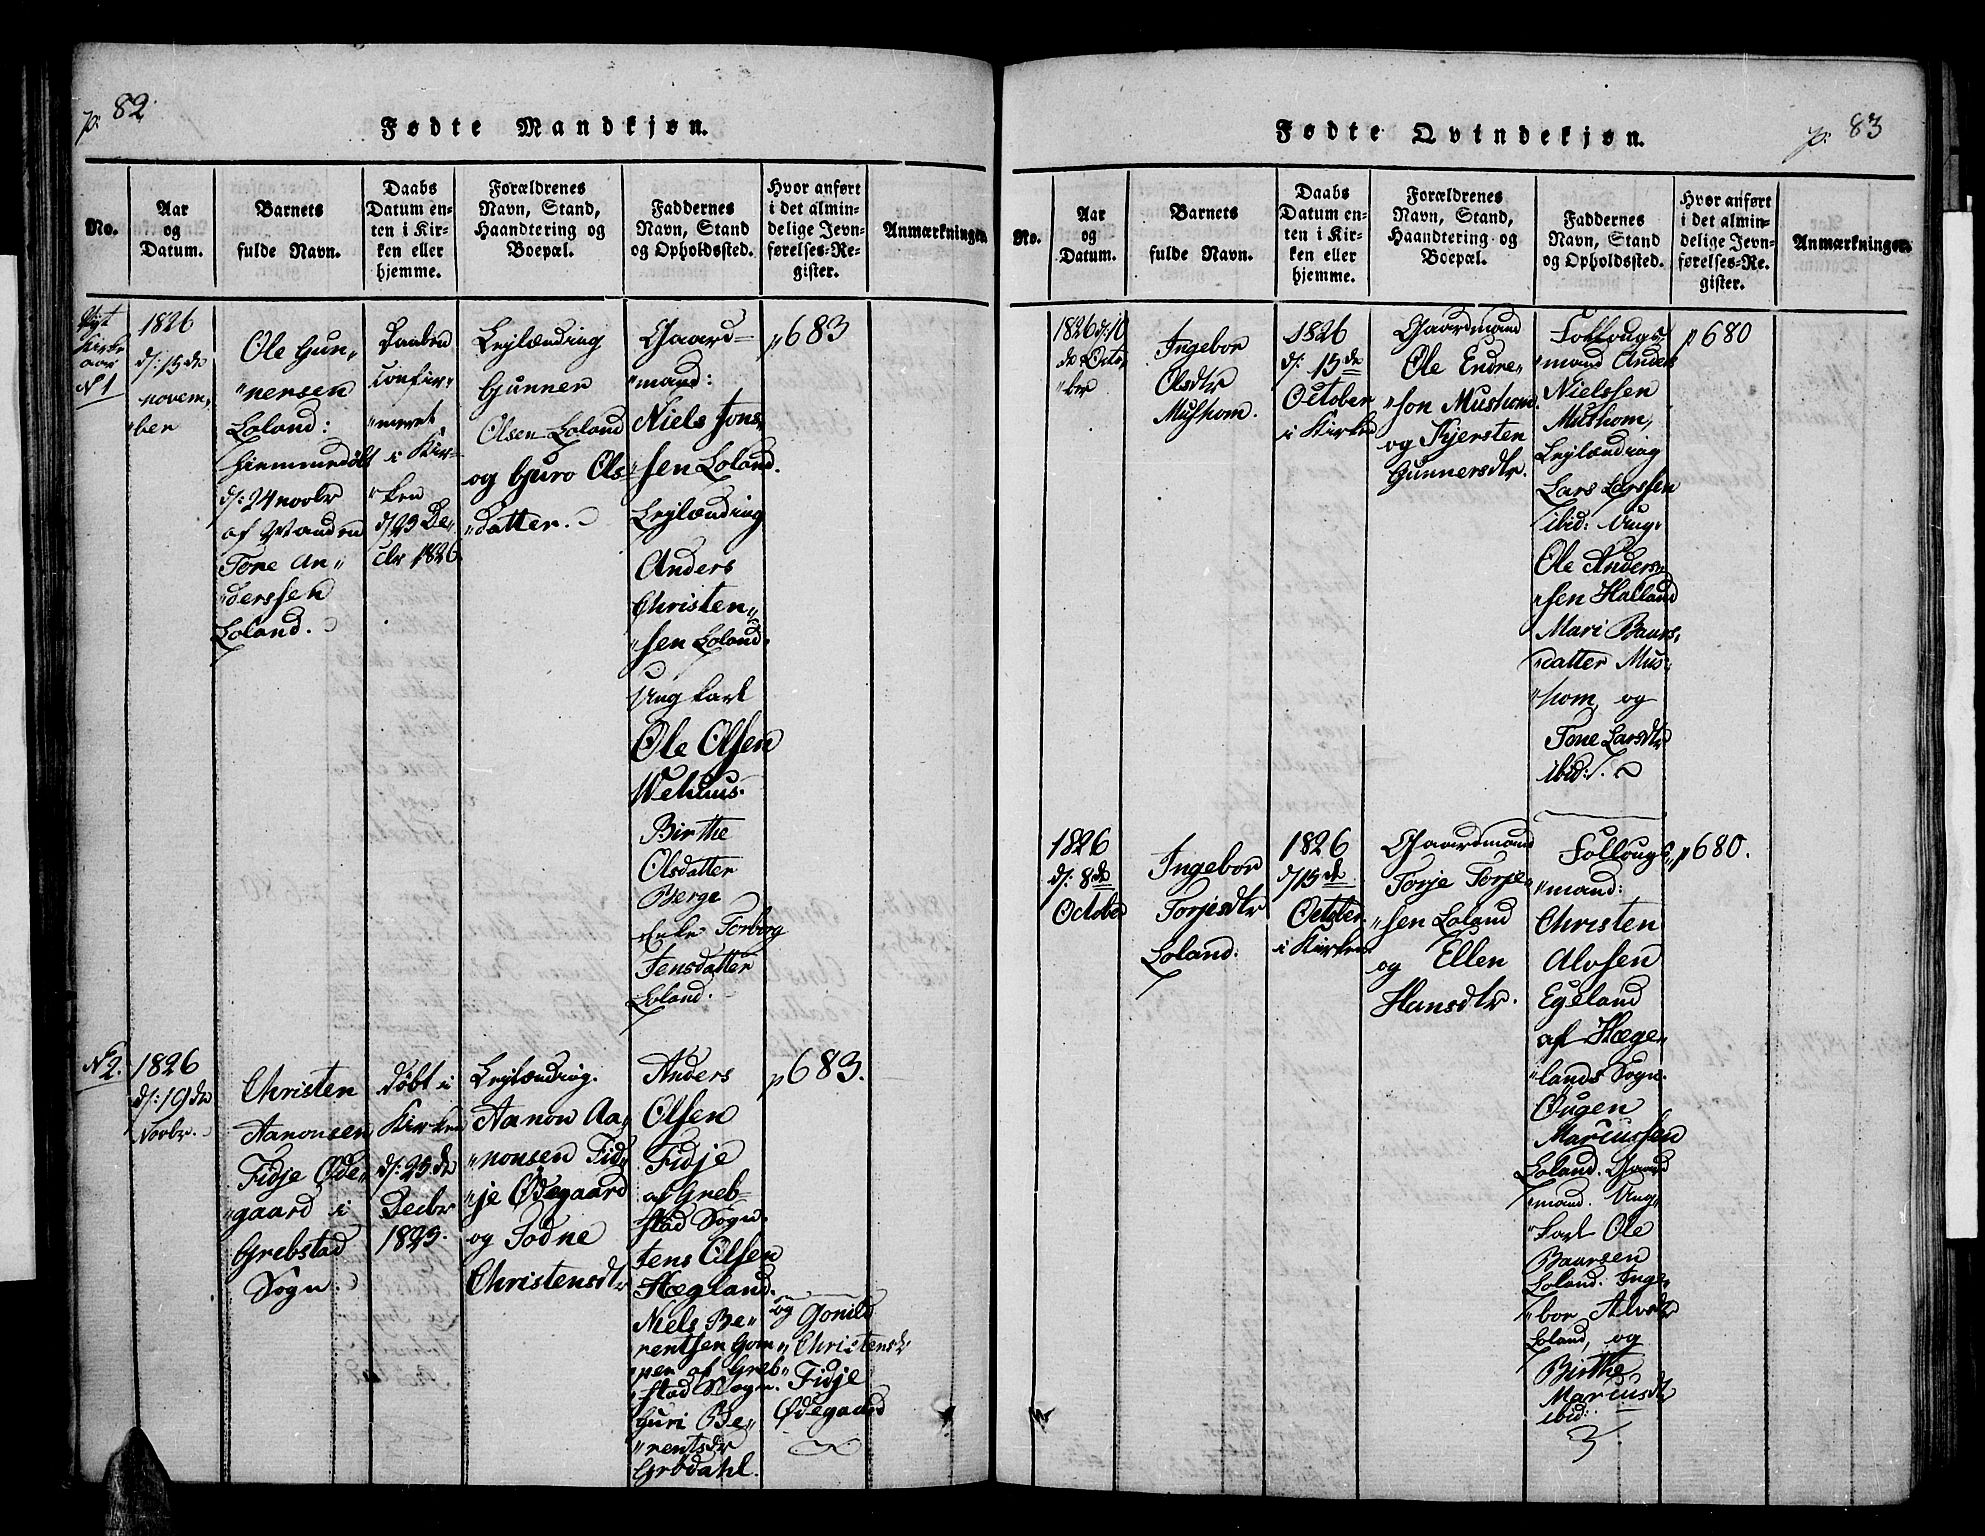 p. 82
Fødte Mandkjøn.
No.
Aar
og
Datum.
Barnets
fulde Navn.
Daabs
Datum en-
ten i Kir-
ken eller
hjemme.
Forældrenes
Navn, Stand,
Haandtering og
Boepæl.
Faddernes
Navn, Stand
og Opholdssted.
Hvor anført
i det almin-
delige Jevn-
førelses-Re-
gister.
Anmærkninger.
Nyt
Kirke
aar
N 1
1826
d: 15 de
novem,
"ber
Ole Gun-
"nersen
Loland:
hiemmedøbt
d: 24 novbr
af Manden
Tone An-
"derssen
Loland.
Daaben
confir-
"meret
i Kir-
"ken
d/23 De-
cbr 1826.
Lejlænding
Gunner
Olsen Loland
og Guro Ols-
"datter.
Gaard-
"mand:
Niels Jons,
"sen Loland.
Lejlænding
Anders
Christen"
"sen Loland.
Ung karl
Ole Olsen
Wehuus.
Birthe
Olsdatter
Berge
Enke Torborg
Jensdatter
Loland.
p 683
N 2.
1826
d: 19 de
Novbr.
Christen
Aanonsen
Fidje Øde-
"gaard i
Grebstad
Sogn.
døbt i
Kirken
d: 25 de
Decbr
1825.
Lejlænding.
Aanon Aa,
"nonsen Fid,
"je Ødegaard
og Todne
Christensdtr
Anders
Olsen
Fidje
af Greb-
stad Sogn.
Jens Olsen
Hægland.
Niels Be-
rentsen Gom-
"pen af Greb-
"stad Sogn.
Guri Be-
"rentsdr
Grødahl.
p 683.
og Gonild
"Christensdr
Fidje
Ødegaard
p. 83
Fødte Qvindekjøn.
No.
Aar
og
Datum.
Barnets
fulde Navn.
Daabs
Datum en-
ten i Kir-
ken eller
hjemme.
Forældrenes
Navn, Stand,
Haandtering og
Boepæl.
Faddernes
Navn, Stand
og Opholdssted.
Hvor anført
i det almin-
delige Jevn-
førelses-Re-
gister.
Anmærkninger.
1826 d: 10
de Octo,
"ber
Ingebor
Olsdtr
Mushom.
1826
d: 15 de
October
i Kirken
Gaardmand
Ole Endre-
"son Mushom.
og Kjersten
Gunnersdtr.
Follougs,
"mand Anders
Nielssen
Mushom,
Lejlænding
Lars Larssen
ibid: Ung,
Ole Anders,
"sen Halland
Mari Baars,
"datter Mus-
"hom, og
Tone Larsdtr
ibid:/.
p 680
1826
d: 8 de
October
Ingebor
Torjesdtr
Loland.
1826
d/15 de
October
i Kirken
Gaardmand
Torje Torje-
"sen Loland
og Ellen
Hansdtr.
Follougs,
"mand:
Christen
Alvsen
Egeland
af Hæge-
"lands Sogn.
Øugen
Marcussen
Loland. Gaard
"mand. Ung,
"karl Ole
Baarsen
Loland. Inge-
"bor Alvsdtr
Loland, og
Birthe
Marcusdtr
ibid:
p 680.